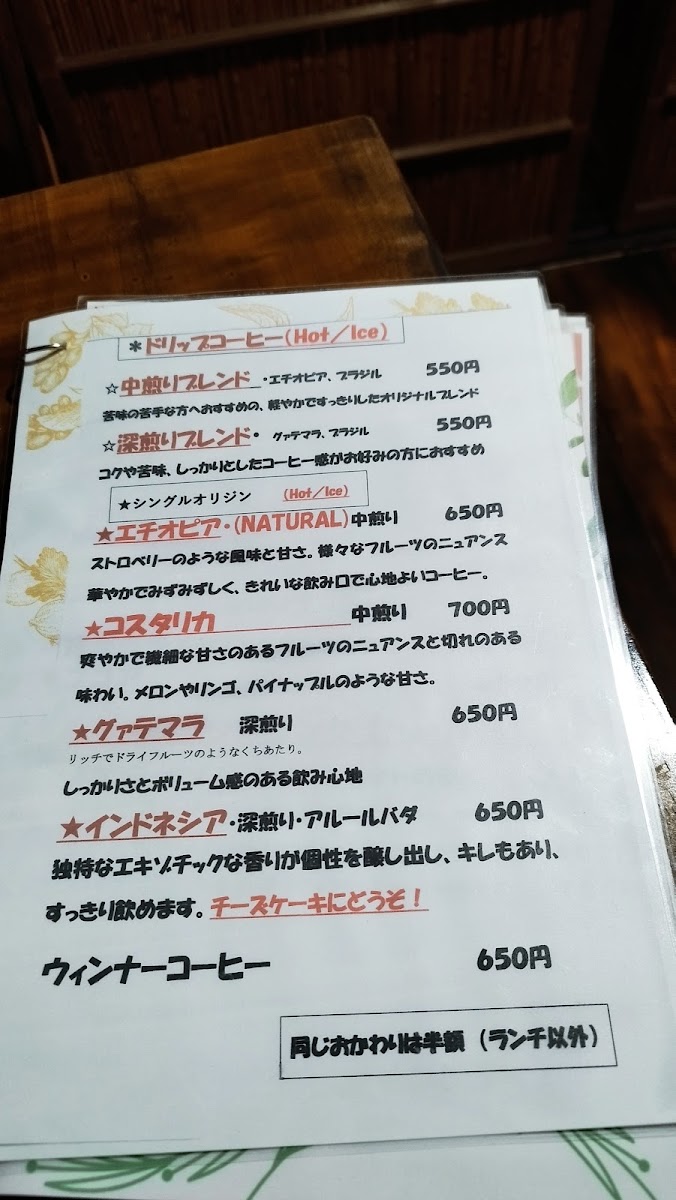 *ドリップコーヒー(Hot/Ice)
☆中煎りブレンド ・エチオピア、ブラジル 550円
苦味の苦手な方へおすすめの、軽やかですっきりしたオリジナルブレンド
☆深煎りブレンド・ グァテマラ、ブラジル 550円
コクや苦味、しっかりとしたコーヒー感がお好みの方におすすめ
★シングルオリジン (Hot/Ice)
★エチオピア・(NATURAL)中煎り 650円
ストロベリーのような風味と甘さ。様々なフルーツのニュアンス
華やかでみずみずしく、きれいな飲み口で心地よいコーヒー。
★コスタリカ 中煎り 700円
爽やかで繊細な甘さのあるフルーツのニュアンスと切れのある
味わい。メロンやリンゴ、パイナップルのような甘さ。
★グァテマラ 深煎り 650円
リッチでドライフルーツのようなくちあたり。
しっかりさとボリューム感のある飲み心地
★インドネシア・深煎り・アルールバダ 650円
独特なエキゾチックな香りが個性を醸し出し、キレもあり、
すっきり飲めます。チーズケーキにどうぞ！
ウィンナーコーヒー 650円
同じおかわりは半額（ランチ以外）